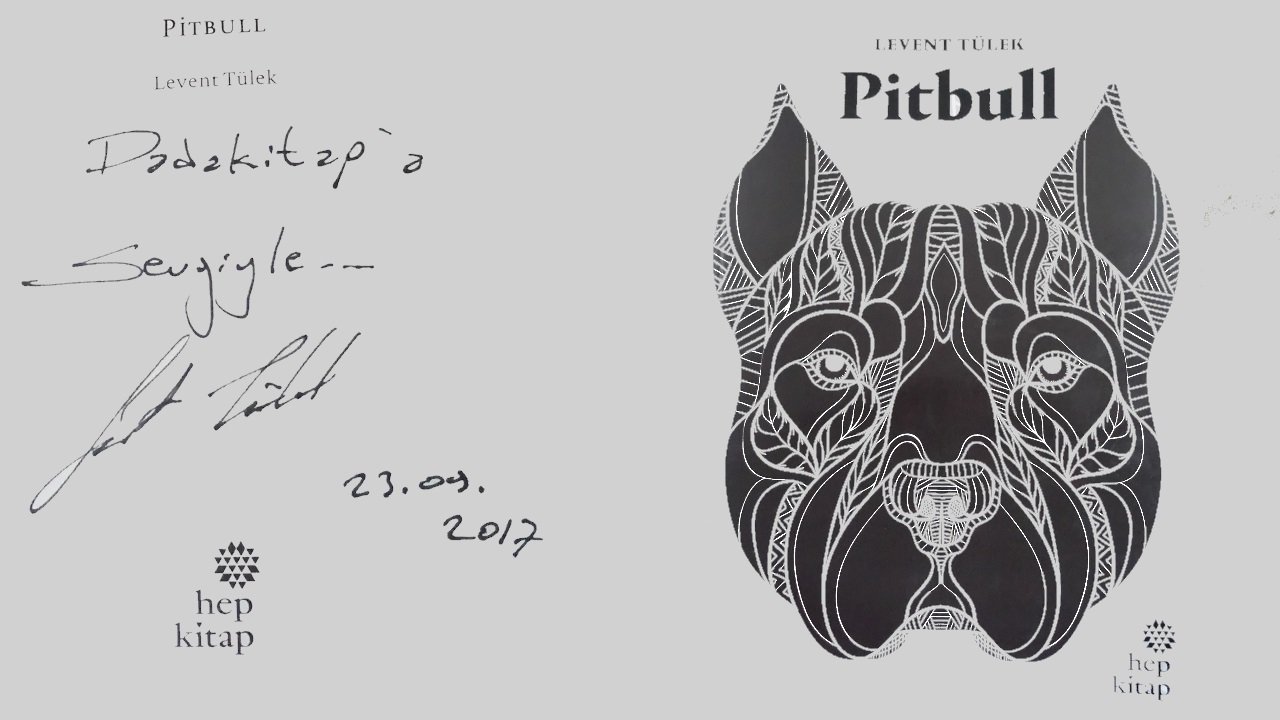 PİTBULL
Levent Tülek
Dadakitap'a
Sevgiyle...
Levent Tülek
23.09.
2017
hep
kitap
LEVENT TÜLEK
Pitbull
hep
kitap